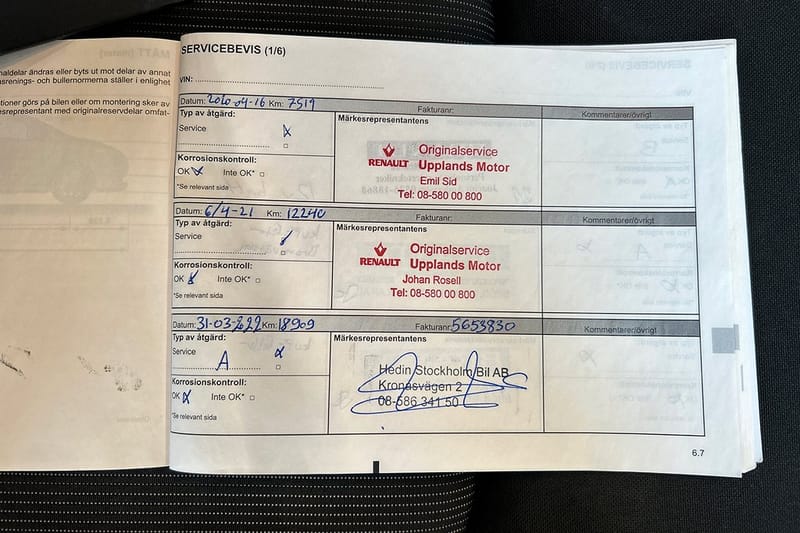 naldelar ändras eller byts ut mot delar av annat
srenings- och bullernormerna ställer i enlighet
tioner görs på bilen eller om montering sker av
srepresentant med originalreservdelar omfat-
SERVICEBEVIS (1/6)
VIN:
Datum: 2020-04-16 Km: 7519 Fakturanr: Kommentarer/övrigt
Typ av åtgärd: Märkesrepresentantens
Service x
Korrosionskontroll:
OK x Inte OK*
*Se relevant sida
Originalservice
RENAULT Upplands Motor
Emil Sid
Tel: 08-580 00 800
Datum: 6/4-21 Km: 12240 Fakturanr: Kommentarer/övrigt
Typ av åtgärd: Märkesrepresentantens
Service
Korrosionskontroll:
OK x Inte OK*
*Se relevant sida
Originalservice
RENAULT Upplands Motor
Johan Rosell
Tel: 08-580 00 800
Datum: 31-03-2022 Km: 18909 Fakturanr: 5653830 Kommentarer/övrigt
Typ av åtgärd: Märkesrepresentantens
Service x
A
Korrosionskontroll:
OK x Inte OK*
*Se relevant sida
Hedin Stockholm Bil AB
Kronåsvägen 2
08-586 341 50
6.7